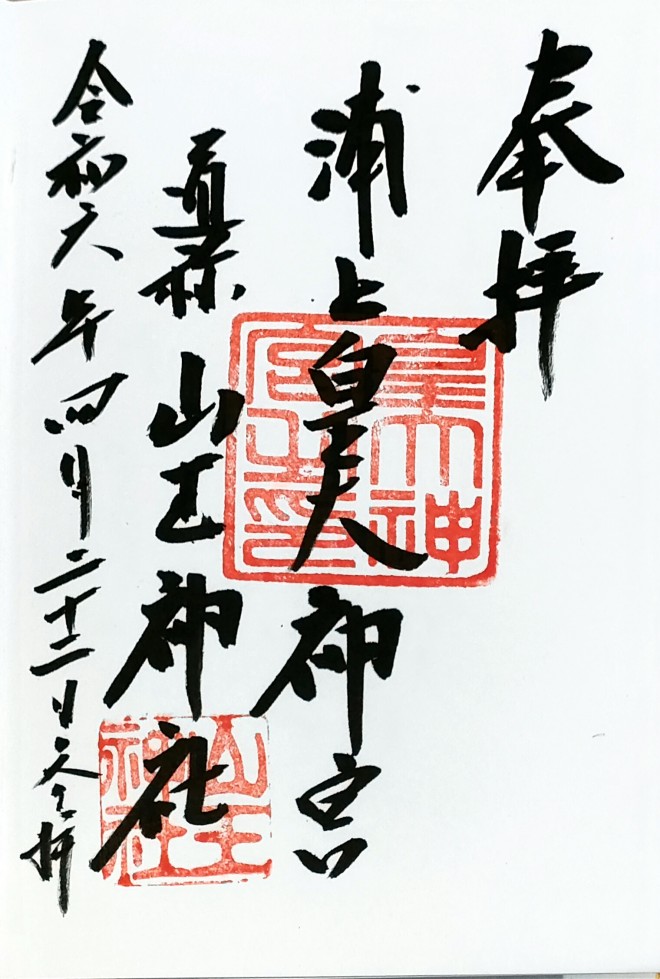 奉拝
浦上皇大神宮
山王神社
令和六年四月二十二日
皇大神宮之印
山王神社